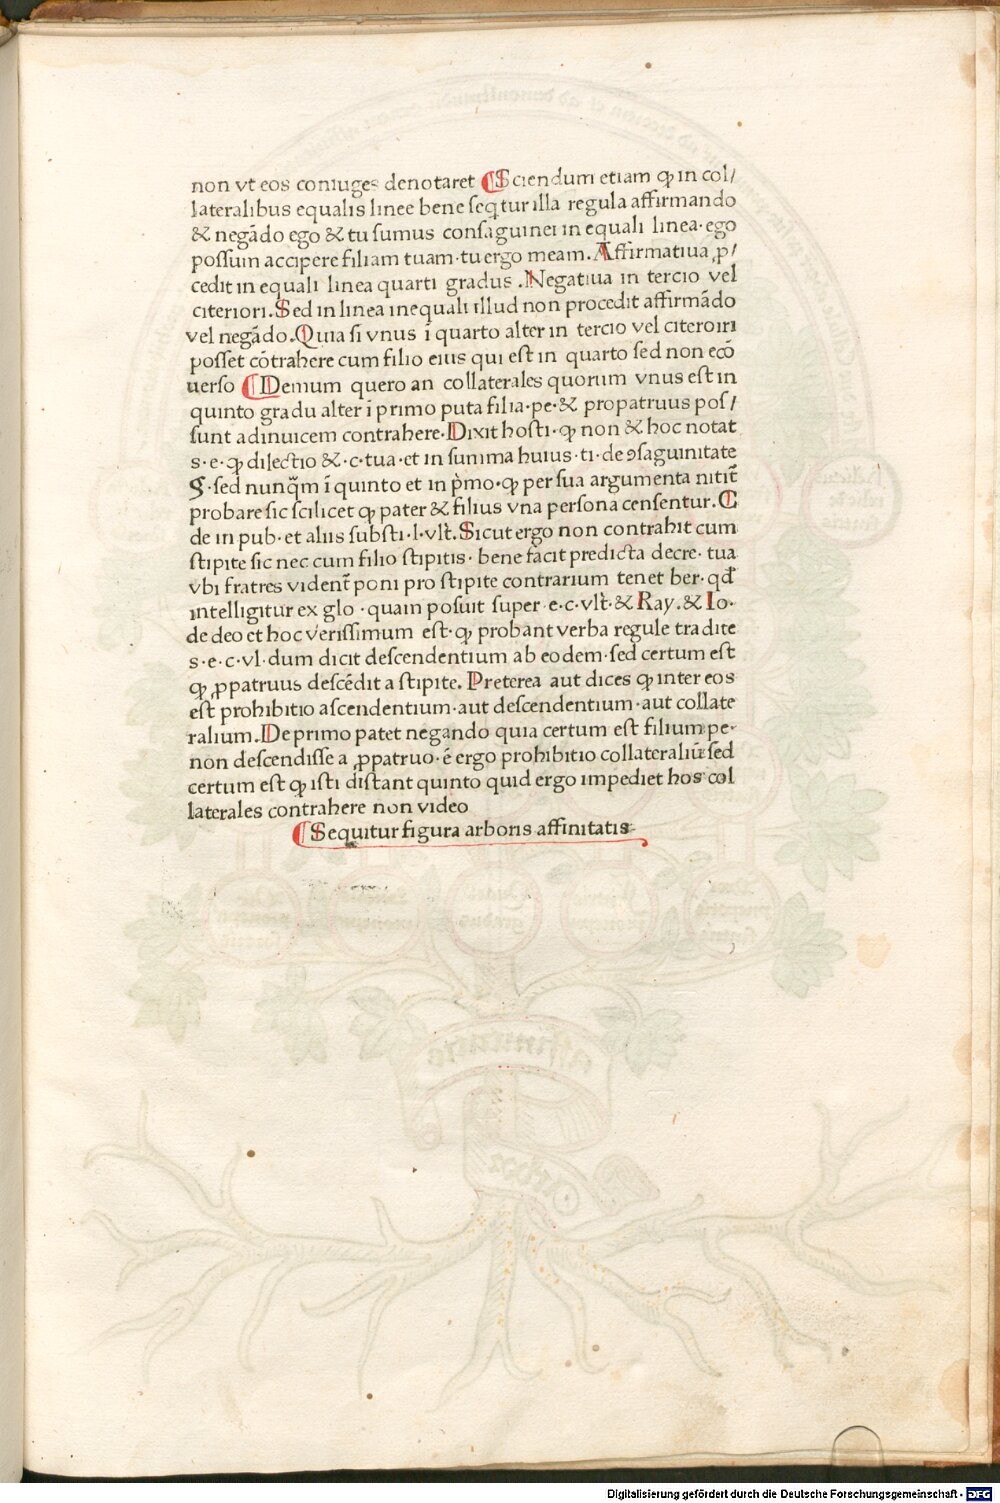 non vt eos coniuges denotaret ¶ Sciendum etiam ꝙ in col/
lateralibus equalis linee bene seq̃tur illa regula affirmando
& negãdo ego & tu sumus consaguinei in equali linea·ego
possum accipere filiam tuam·tu ergo meam. Affirmatiua ꝓ/
cedit in equali linea quarti gradus .Negatiua in tercio vel
citeriori.Sed in linea inequali illud non procedit affirmãdo
vel negãdo.Quia si vnus ĩ quarto alter in tercio vel citeroiri
posset cõtrahere cum filio eius qui est in quarto sed non ecõ
uerso ¶ Demum quero an collaterales quorum vnus est in
quinto gradu alter ĩ primo puta filia·pe·& propatruus pos/
sunt adinuicem contrahere·Dixit hosti·ꝙ non & hoc notat
s·e·ꝙ dilectio &·c·tua·et in summa huius·ti·de ꝯsaguinitate
§·sed nunq̃m ĩ quinto et in p̃mo·ꝙ per sua argumenta nitit̃
probare sic scilicet ꝙ pater & filius vna persona censentur.C
de in pub·et aliis substi·l·vlt̃.Sicut ergo non contrahit cum
stipite sic nec cum filio stipitis· bene facit predicta decre·tua
vbi fratres vident̃ poni pro stipite contrarium tenet ber·qd̃
intelligitur ex glo·quam posuit super·e·c·vlt̃·& Ray.& Io·
de deo et hoc verissimum est·ꝙ probant verba regule tradite
s·e·c·vl·dum dicit descendentium ab eodem·sed certum est
ꝙ ꝓpatruus descẽdit a stipite. Preterea aut dices ꝙ inter eos
est prohibitio ascendentium·aut descendentium·aut collate
ralium.De primo patet negando quia certum est filium pe·
non descendisse a ꝓpatruo·ẽ ergo prohibitio collateraliũ sed
certum est ꝙ isti distant quinto quid ergo impediet hos col
laterales contrahere non video
¶ Sequitur figura arboris affinitatis·
Digitalisierung gefördert durch die Deutsche Forschungsgemeinschaft - DFG